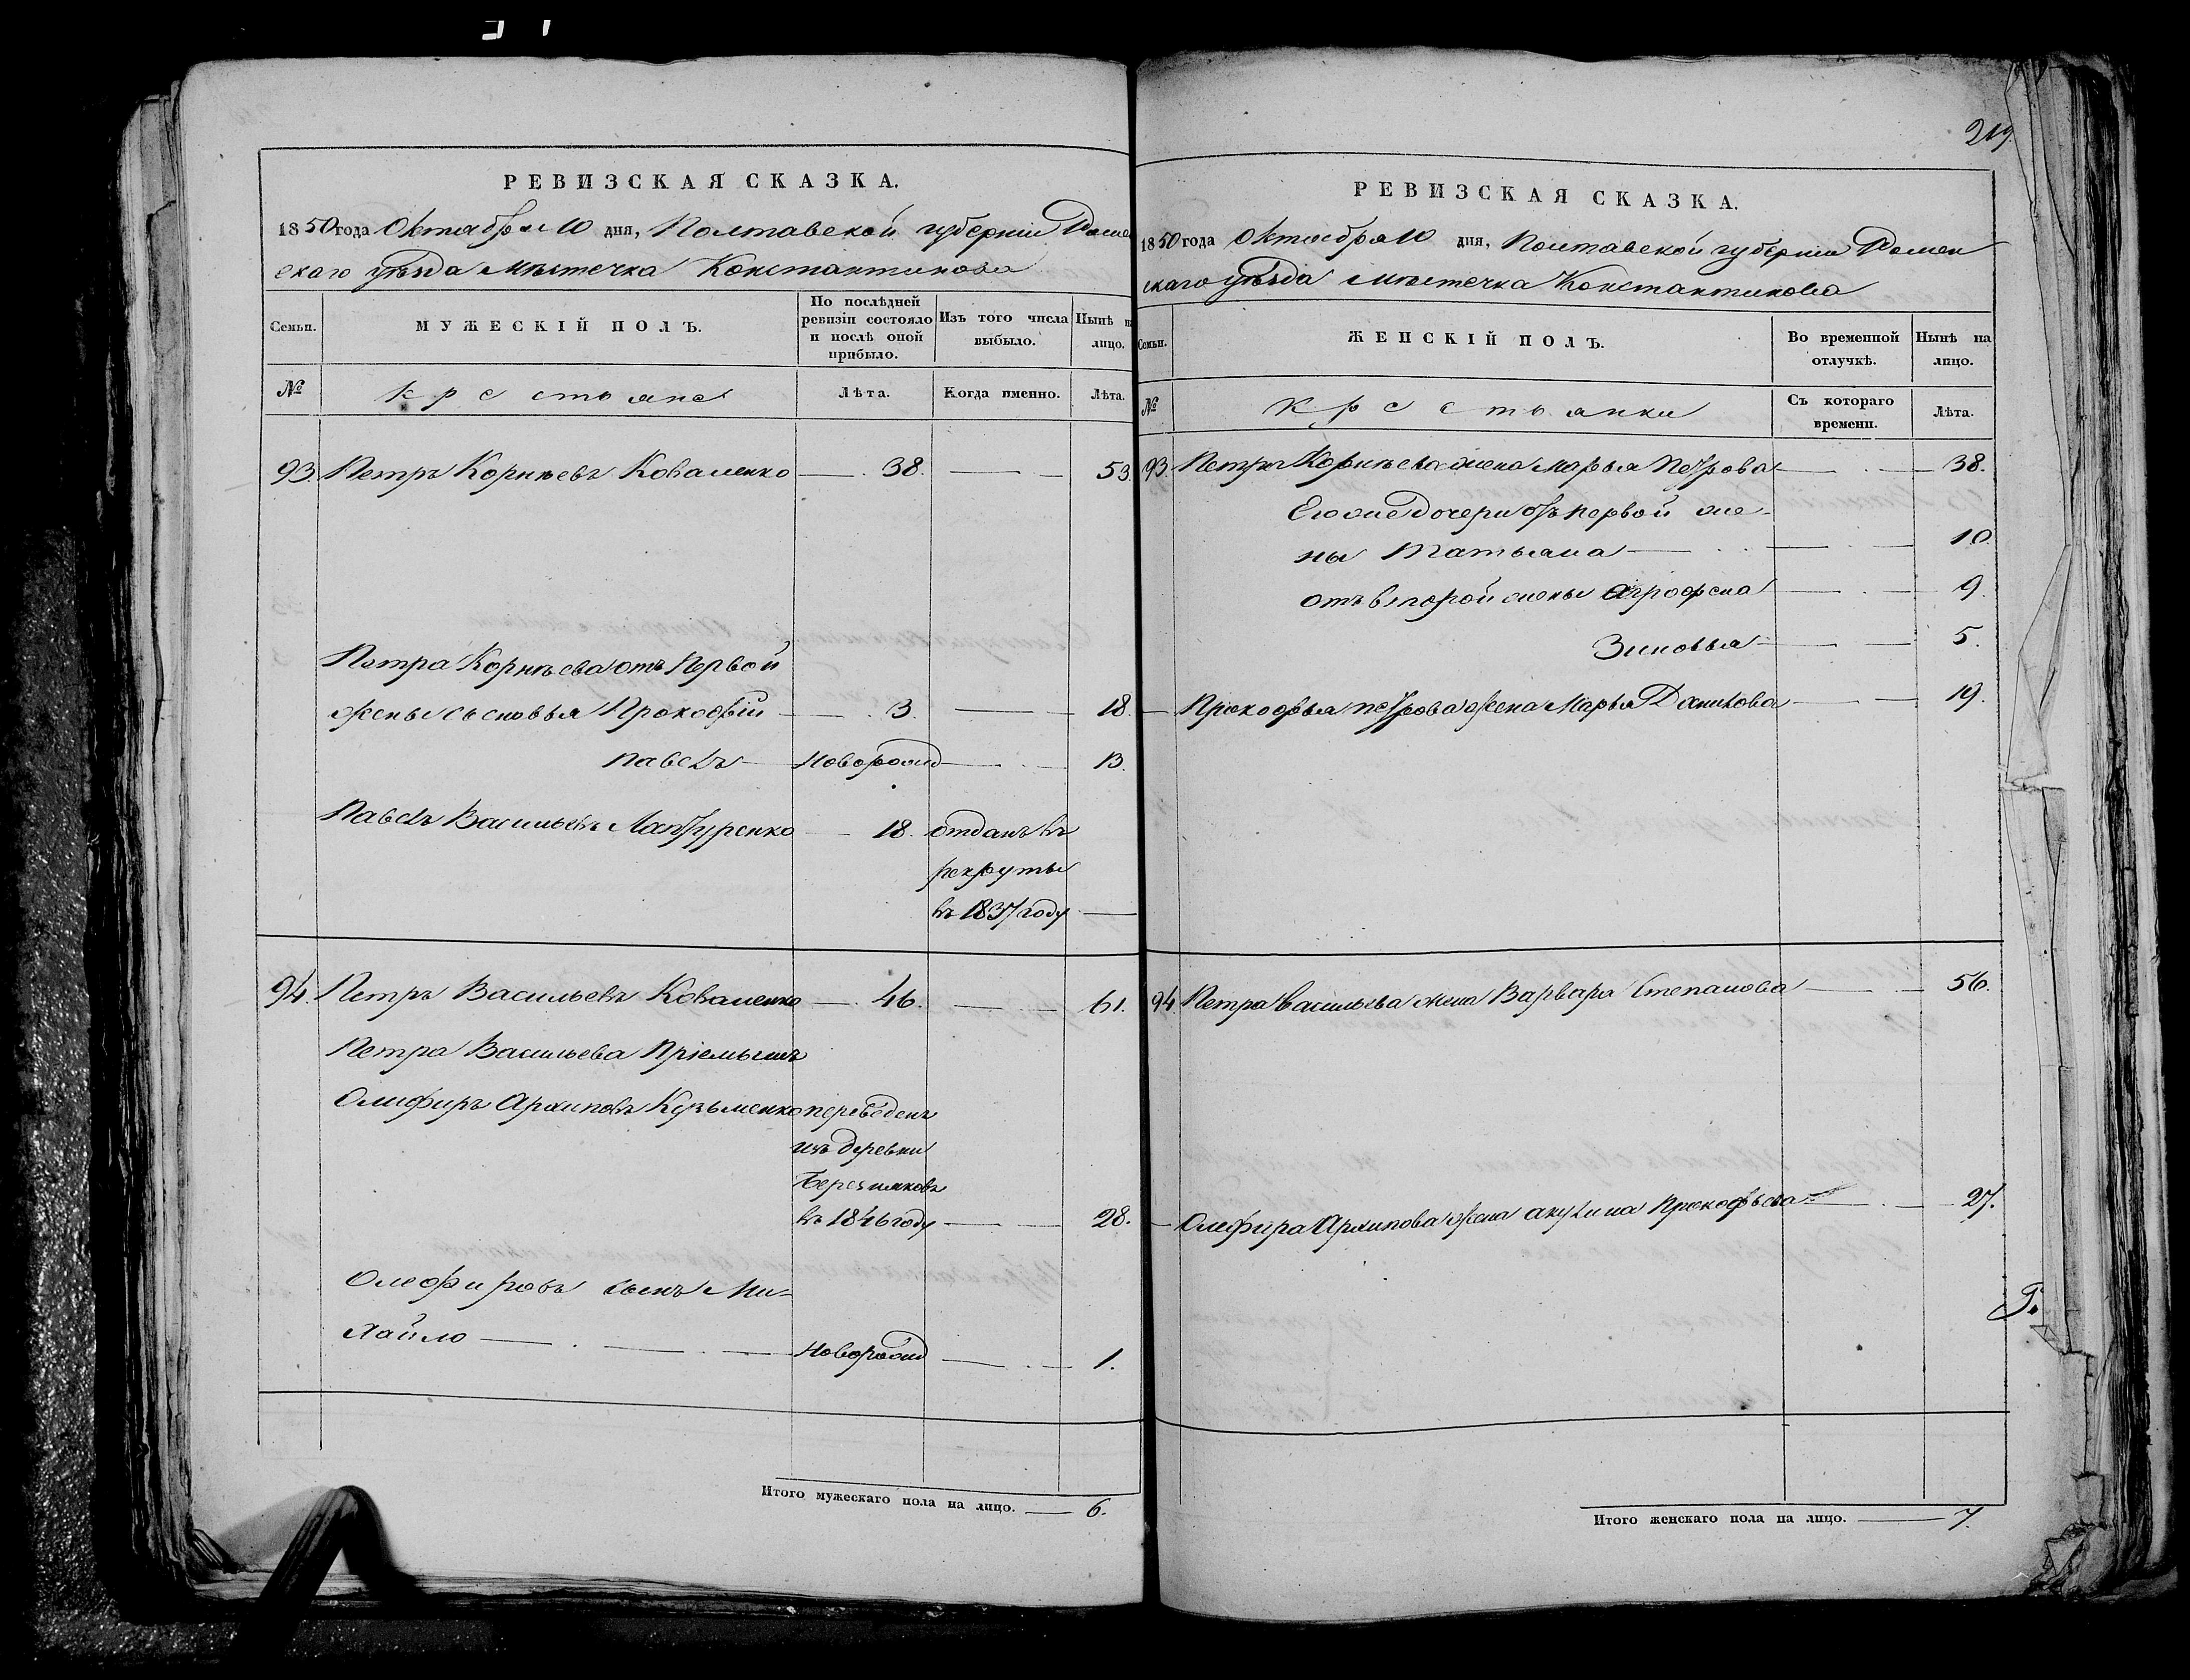 219
РЕВИЗСКАЯ СКАЗКА.
1850 года Октября 10 дня, Полтавской губерніи Роме
скаго уѣзда мѣстечка Константинова
Семьи.
МУЖЕСКІЙ ПОЛЪ.
По послѣдней ревизіи состояло и послѣ оной прибыло.
Изъ того числа выбыло.
Нынѣ на лицо.
№ Крестьяне Лѣта. Когда именно. Лѣта.
93. Петръ Корнѣевъ Коваленко 38. 53.
Петра Корнѣева отъ первой
жены сыновья Прокофій 3. 18.
Павелъ новорожд 13.
Павелъ Васильевъ 18. отданъ въ
рекруты
въ 1837 году
94. Петръ Васильевъ Коваленко 46. 61.
Петра Васильева пріемышъ
Олифиръ Архиповъ Кузьменко переведенъ
изъ деревни
въ 1846 году 28.
Олефировъ сынъ Ми-
хайло новорожд 1.
Итого мужескаго пола на лицо. 6.
РЕВИЗСКАЯ СКАЗКА.
1850 года Октября 10 дня, Полтавской губерніи Ромен
скаго уѣзда мѣстечка Константинова
Семьи.
ЖЕНСКІЙ ПОЛЪ.
Во временной отлучкѣ.
Нынѣ на лицо.
№ Крестьянки Съ котораго времени. Лѣта.
93. Петра Корнѣева жена Марья Петрова 38.
Его же дочери отъ первой же-
ны Татьяна 10.
отъ второй жены Агрофена 9.
Зиновья 5.
Прокофья Петрова жена Марья Данилова 19.
94. Петра Васильева жена Варвара Степанова 56.
Олефира Архипова жена Акулина Прокофьева 27.
Итого женскаго пола на лицо. 7.